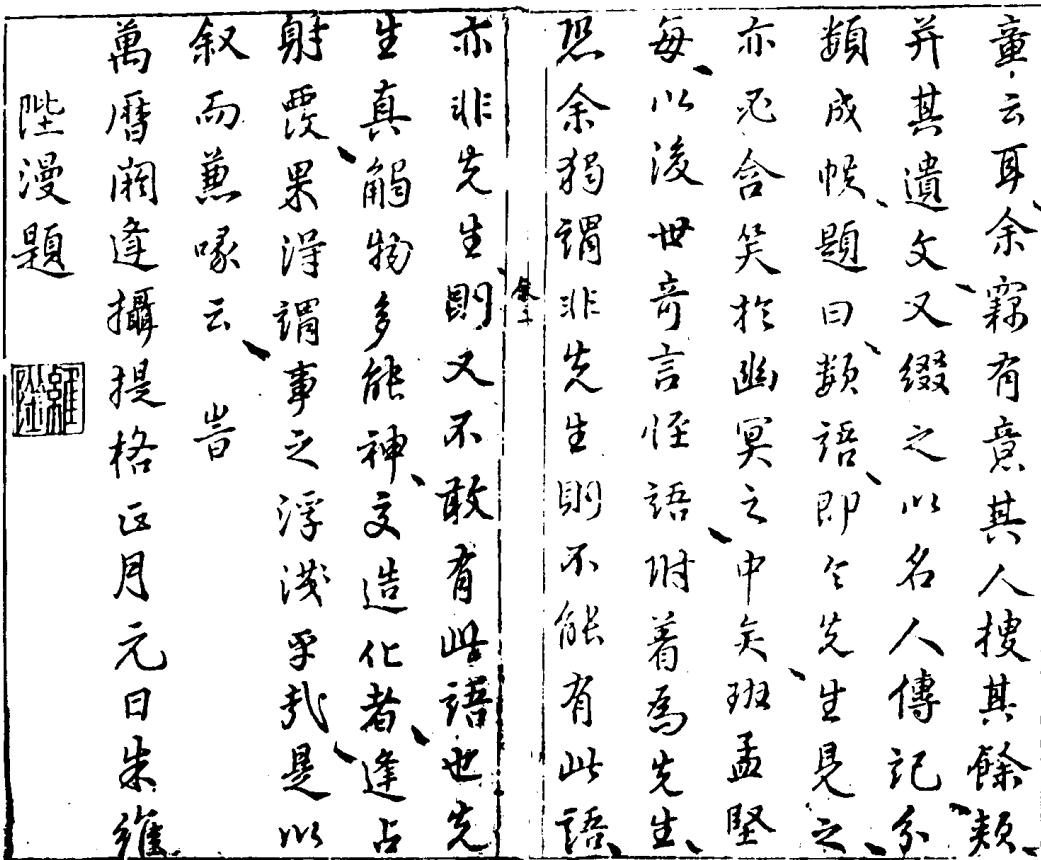 童云耳余竊有意其人摟其餘類
并其遺文又綴之以名人傳記分
類成帙題曰類語即令先生見之
亦必含笑於幽冥之中矣班孟堅
每以後世奇言怪語附着為先生
恐余獨謂非先生則不能有此語
亦非先生則又不敢有此語也先
生真觸物多能神交造化者逢占
射覆果淂謂事之浮淺乎㢤是以
叙而兼喙云 旹
萬曆閼逢攝提格正月元日朱維
陛漫題